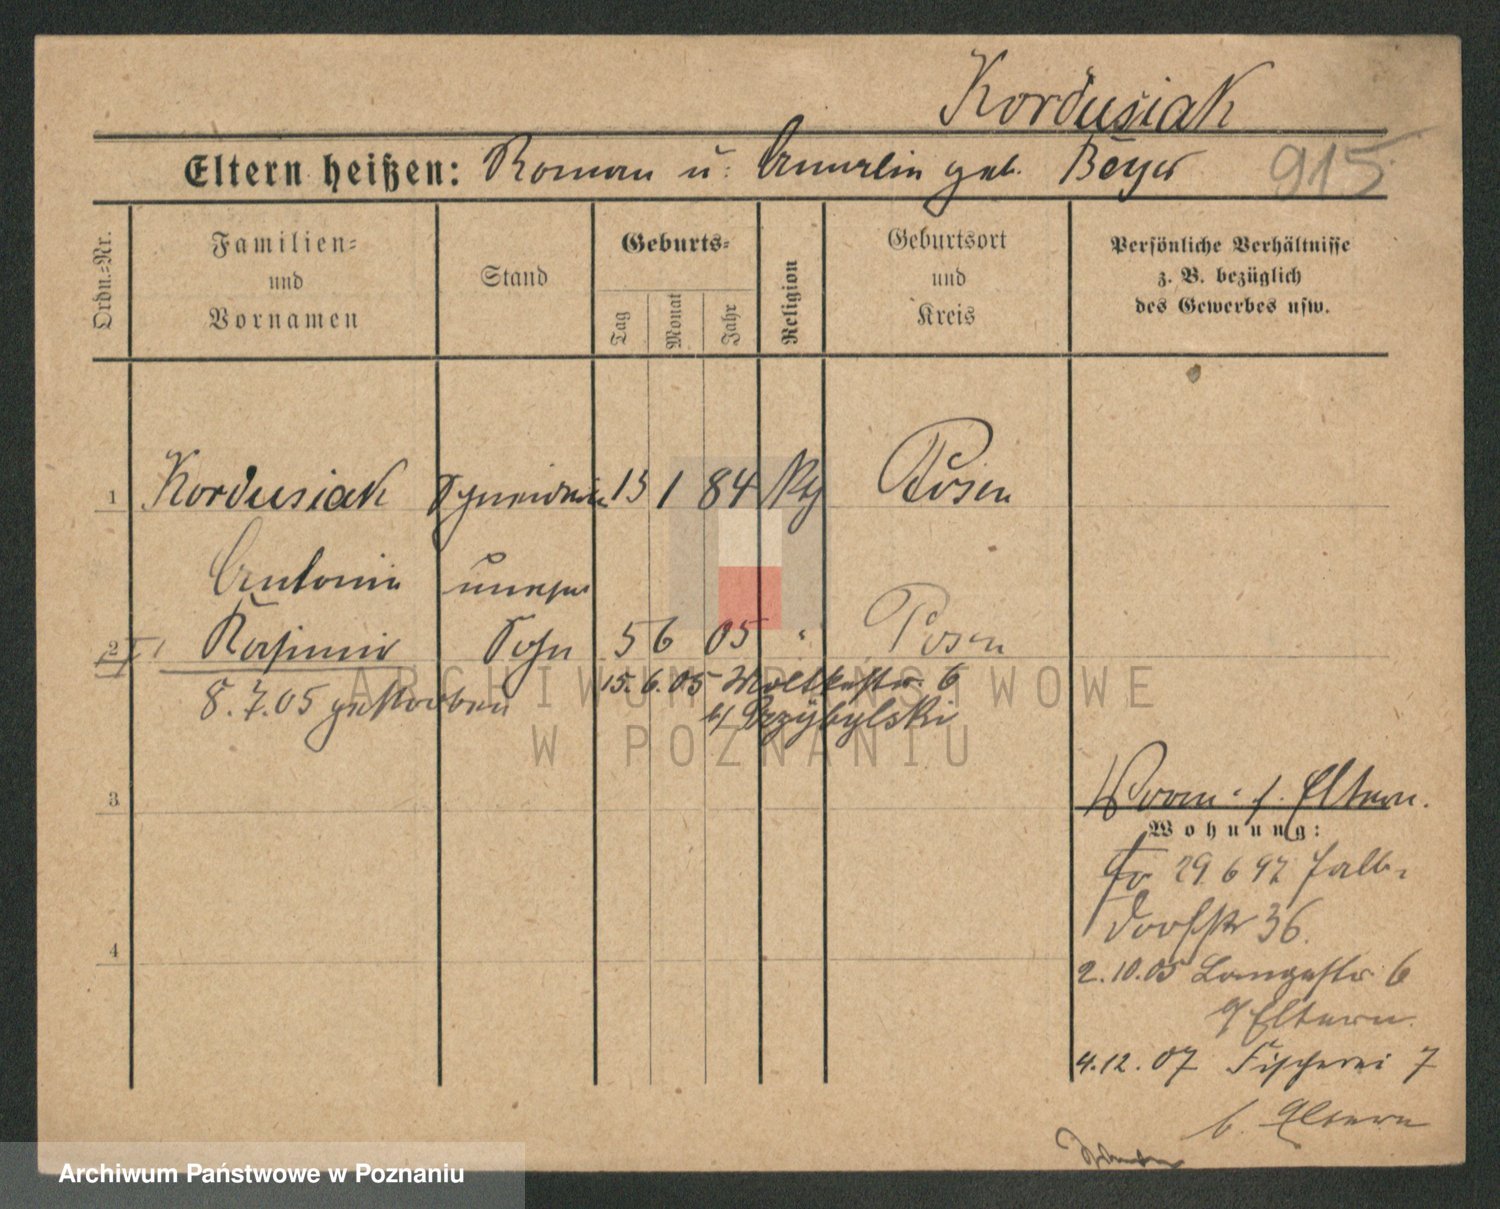 Kordusiak
Eltern heißen: Roman u. geb. Beyer 915
Ordn.=Nr.
Familien=
und
Vornamen
Stand
Geburts=
Tag
Monat
Jahr
Religion
Geburtsort
und
Kreis
Persönliche Verhältnisse
z. B. bezüglich
des Gewerbes usw.
1 Kordusiak Schneiderin 13 1 84 Posen
Antonie unehel
2 Kasimir Sohn 5 6 05 " Posen
8.7.05 gestorben
15.6.05 Moltkestr. 6
Przybylski
3
4
Eltern.
Wohnung:
29 6 97
dorfstr 36.
2.10.05 Langestr. 6
Eltern.
4.12.07 Fischerei 7
b. Eltern
ARCHIWUM PAŃSTWOWE
W POZNANIU
Archiwum Państwowe w Poznaniu